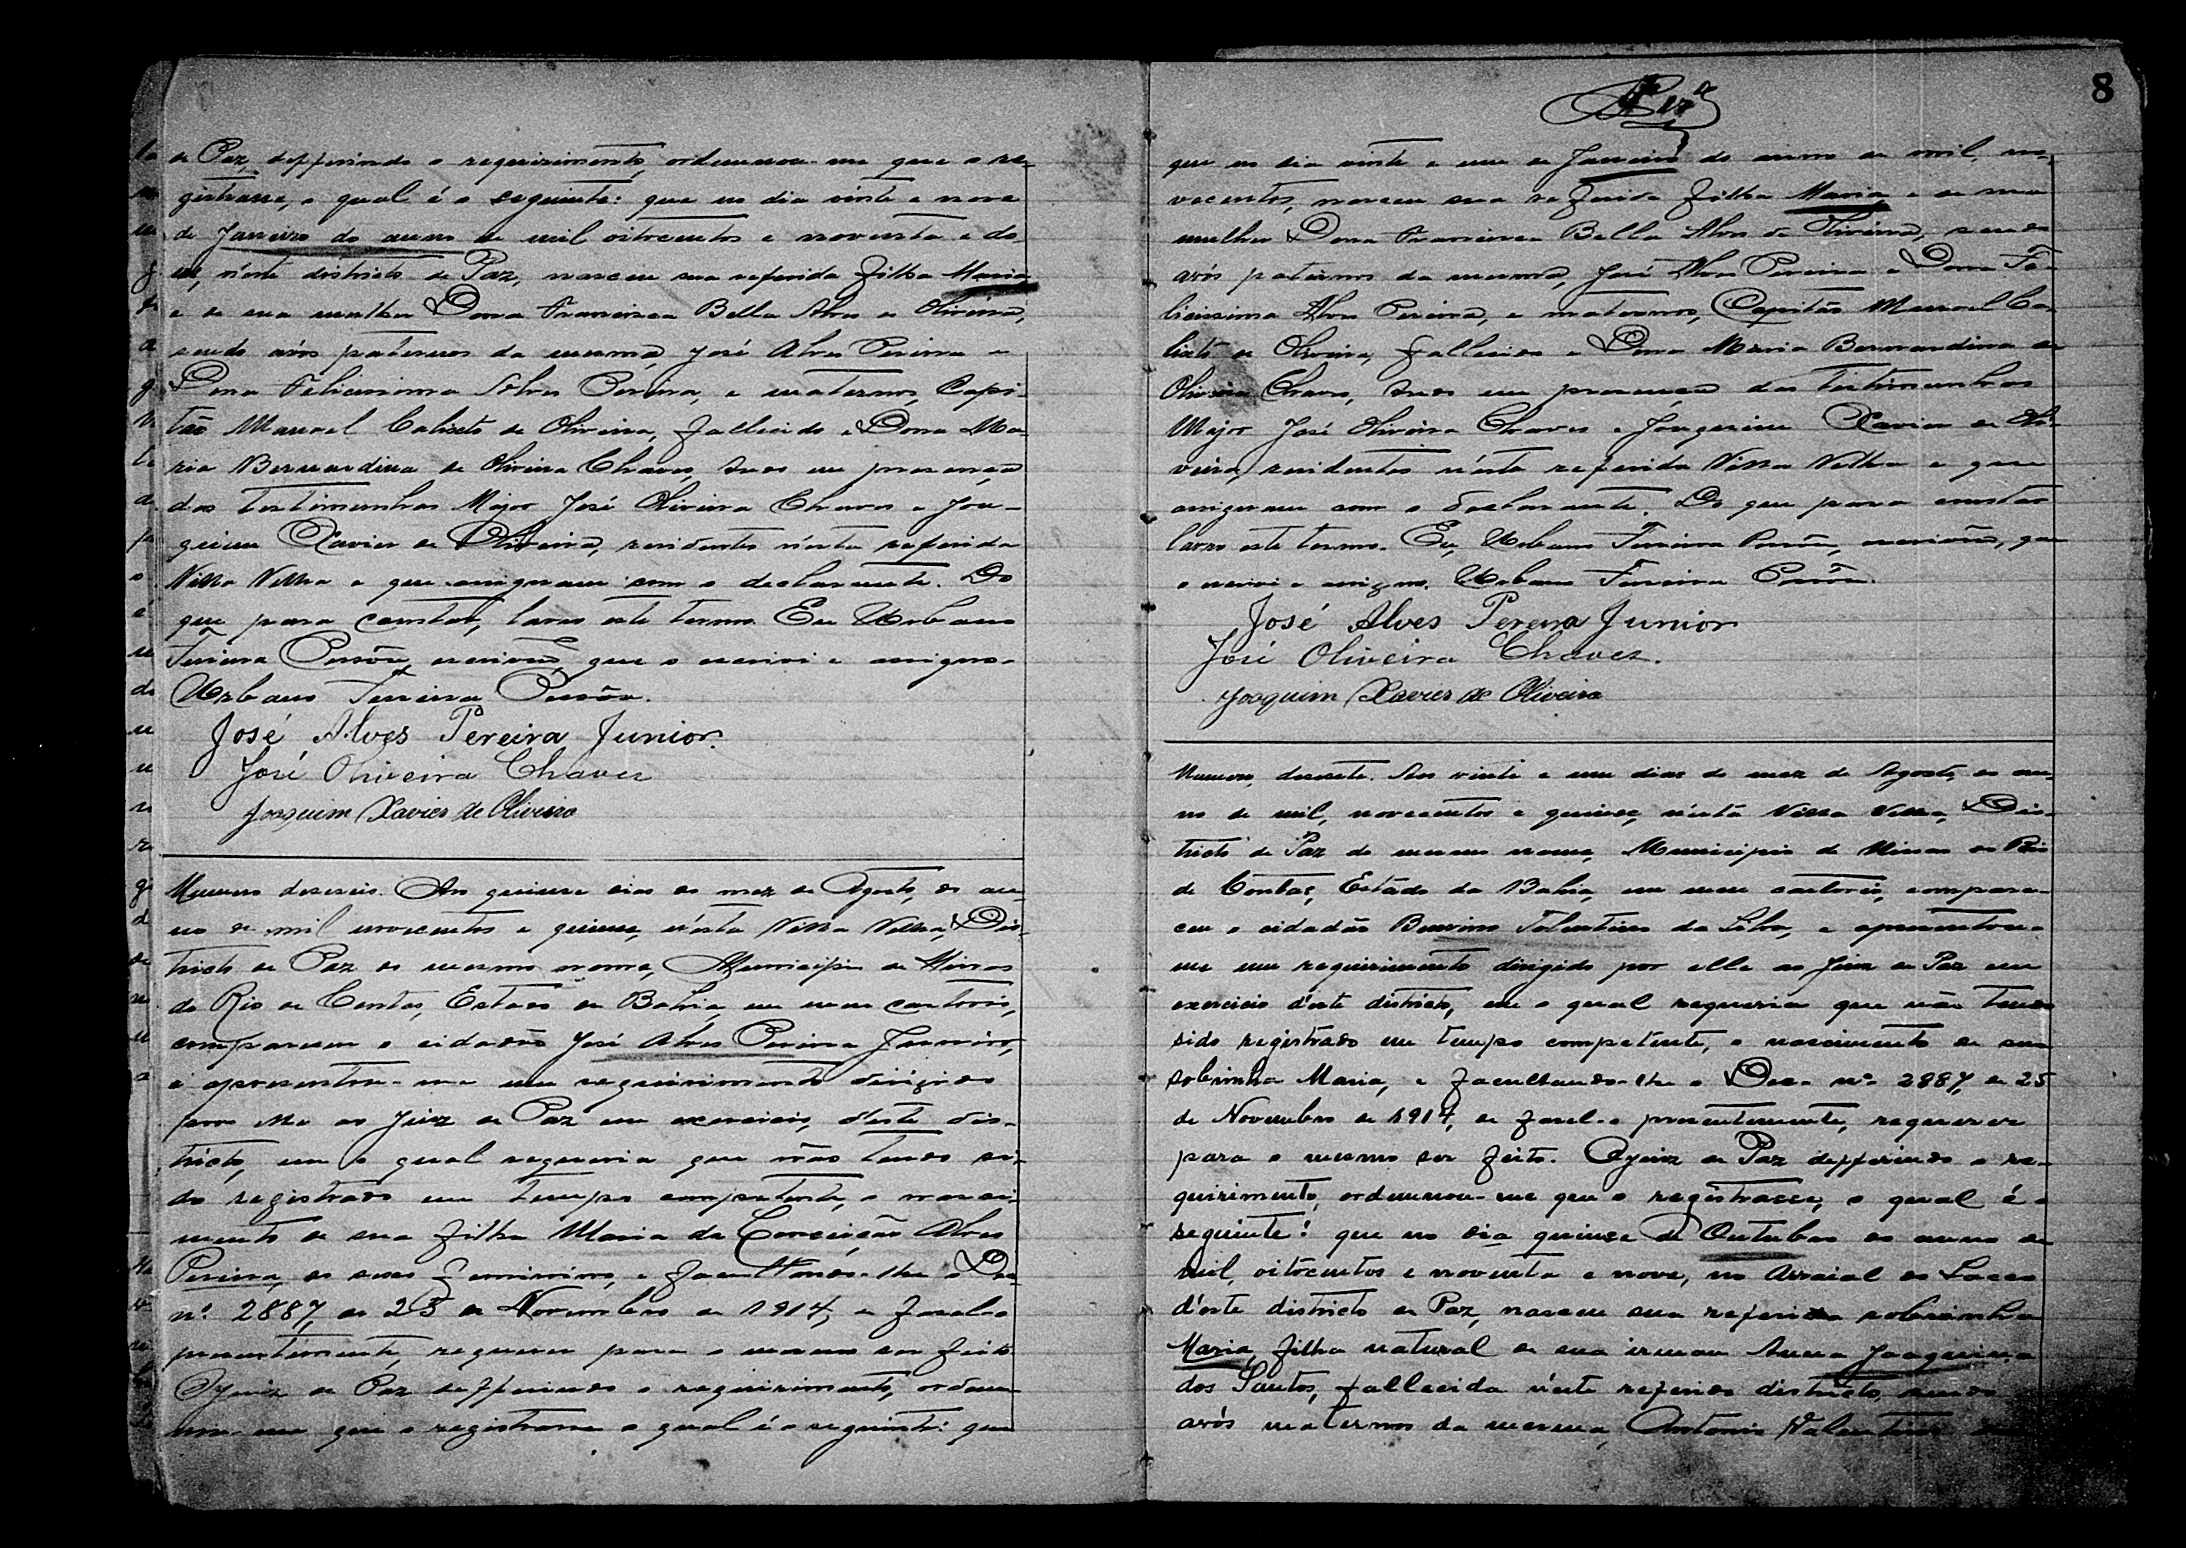 de Paz, defferindo o requirimento, ordennou-me que o re-
gistrasse, o qual é o seguinte: que no dia vinte e nove
de Janeiro do anno de mil oitocentos e noventa e do-
n'este districto de Paz, nasceu sua referida filha Maria,
e de sua mulher Dona Francisca Bella Alves de Oliveira,
sendo avós paternos da mesma José Alves Pereira e
Dona Felicissima Alves Pereira, e maternos, Capi-
tão Manoel Calixto de Oliveira, fallecido e Dona Ma-
ria Bernardina de Oliveira Chaves, tudo em presença
das testimunhas Major José Oliveira Chaves e Joa-
quim Xavier de Oliveira, residentes n'esta referida
Villa Velha e que assignaram com o declarante. Do
que para constar, lavro este termo. Eu Urbano
Ferreira, escrivão, que o escrivi e assigno.
Urbano Ferreira
José Alves Pereira Junior.
José Oliveira Chaves
Joaquim Xavier de Oliveira
Numero deseseis. Aos quinse dias do mez de Agosto, do an-
no de mil novecentos e quinse, n'esta Villa Velha, Dis-
tricto de Paz do mesmo nome, Municipio de Minas
do Rio de Contas, Estado da Bahia, em meu cartorio,
compareceu o cidadão José Alves Pereira Junior,
e apresentou-me um requirimento dirigido
por elle ao Juiz de Paz em exercicio, d'este dis-
tricto, em o qual requeria que não tendo si-
do registrado em tempo competente, o nasci-
mento de sua filha Maria da Conceição Alves
Pereira, do sexo feminino, e facultando-lhe o Dec.
nº 2887, de 25 de Novembro de 1914, de fasel-o
presentemente, requerer para o mesmo ser feito.
O Juiz de Paz defferindo o requirimento, orden-
nou-me que o registrasse o qual é o seguinte: que
8
que no dia vinte e um de Janeiro do anno de mil, no-
vecentos, nasceu sua referida filha Maria e de sua
mulher Dona Francisca Bella Alves de Oliveira, sendo
avós paternos da mesma, José Alves Pereira e Dona Fe-
licissima Alves Pereira, e maternos, Capitão Manoel Ca-
lixto de Oliveira, fallecido e Dona Maria Bernardina de
Oliveira Chaves, tudo em presença das testimunhas
Major José Oliveira Chaves e Joaquim Xavier de Oli-
veira, residentes n'esta referida Villa Velha e que
assignaram com o declarante. Do que para constar
lavro este termo. Eu, Urbano Ferreira, escrivão, que
o escrivi e assigno. Urbano Ferreira
José Alves Pereira Junior
José Oliveira Chaves.
Joaquim Xavier de Oliveira
Numero, desesete. Aos vinte e um dias do mez de Agosto, do an-
no de mil, novecentos e quinse, n'esta Villa Velha, Dis-
tricto de Paz do mesmo nome, Municipio de Minas do Rio
de Contas, Estado da Bahia, em meu cartorio, compare-
ceu o cidadão Tolentino da Silva, e apresentou-
me um requirimento dirigido por elle ao Juiz de Paz em
exercicio d'este districto, em o qual requeria que não tendo
sido registrado em tempo competente, o nascimento de sua
sobrinha Maria, e facultando-lhe o Dec. nº 2887, de 25
de Novembro de 1914, de fasel-o presentemente, requerer
para o mesmo ser feito. O Juiz de Paz defferindo o re-
quirimento, ordennou-me que o registrasse, o qual é o
seguinte: que no dia quinse de Outubro do anno de
mil, oitocentos e noventa e nove, no Arraial do
d'este districto de Paz, nasceu sua referida sobrinha
Maria, filha natural de sua irman Anna Joaquina
dos Santos, fallecida n'este referido districto, sendo
avós maternos da mesma, Antonio